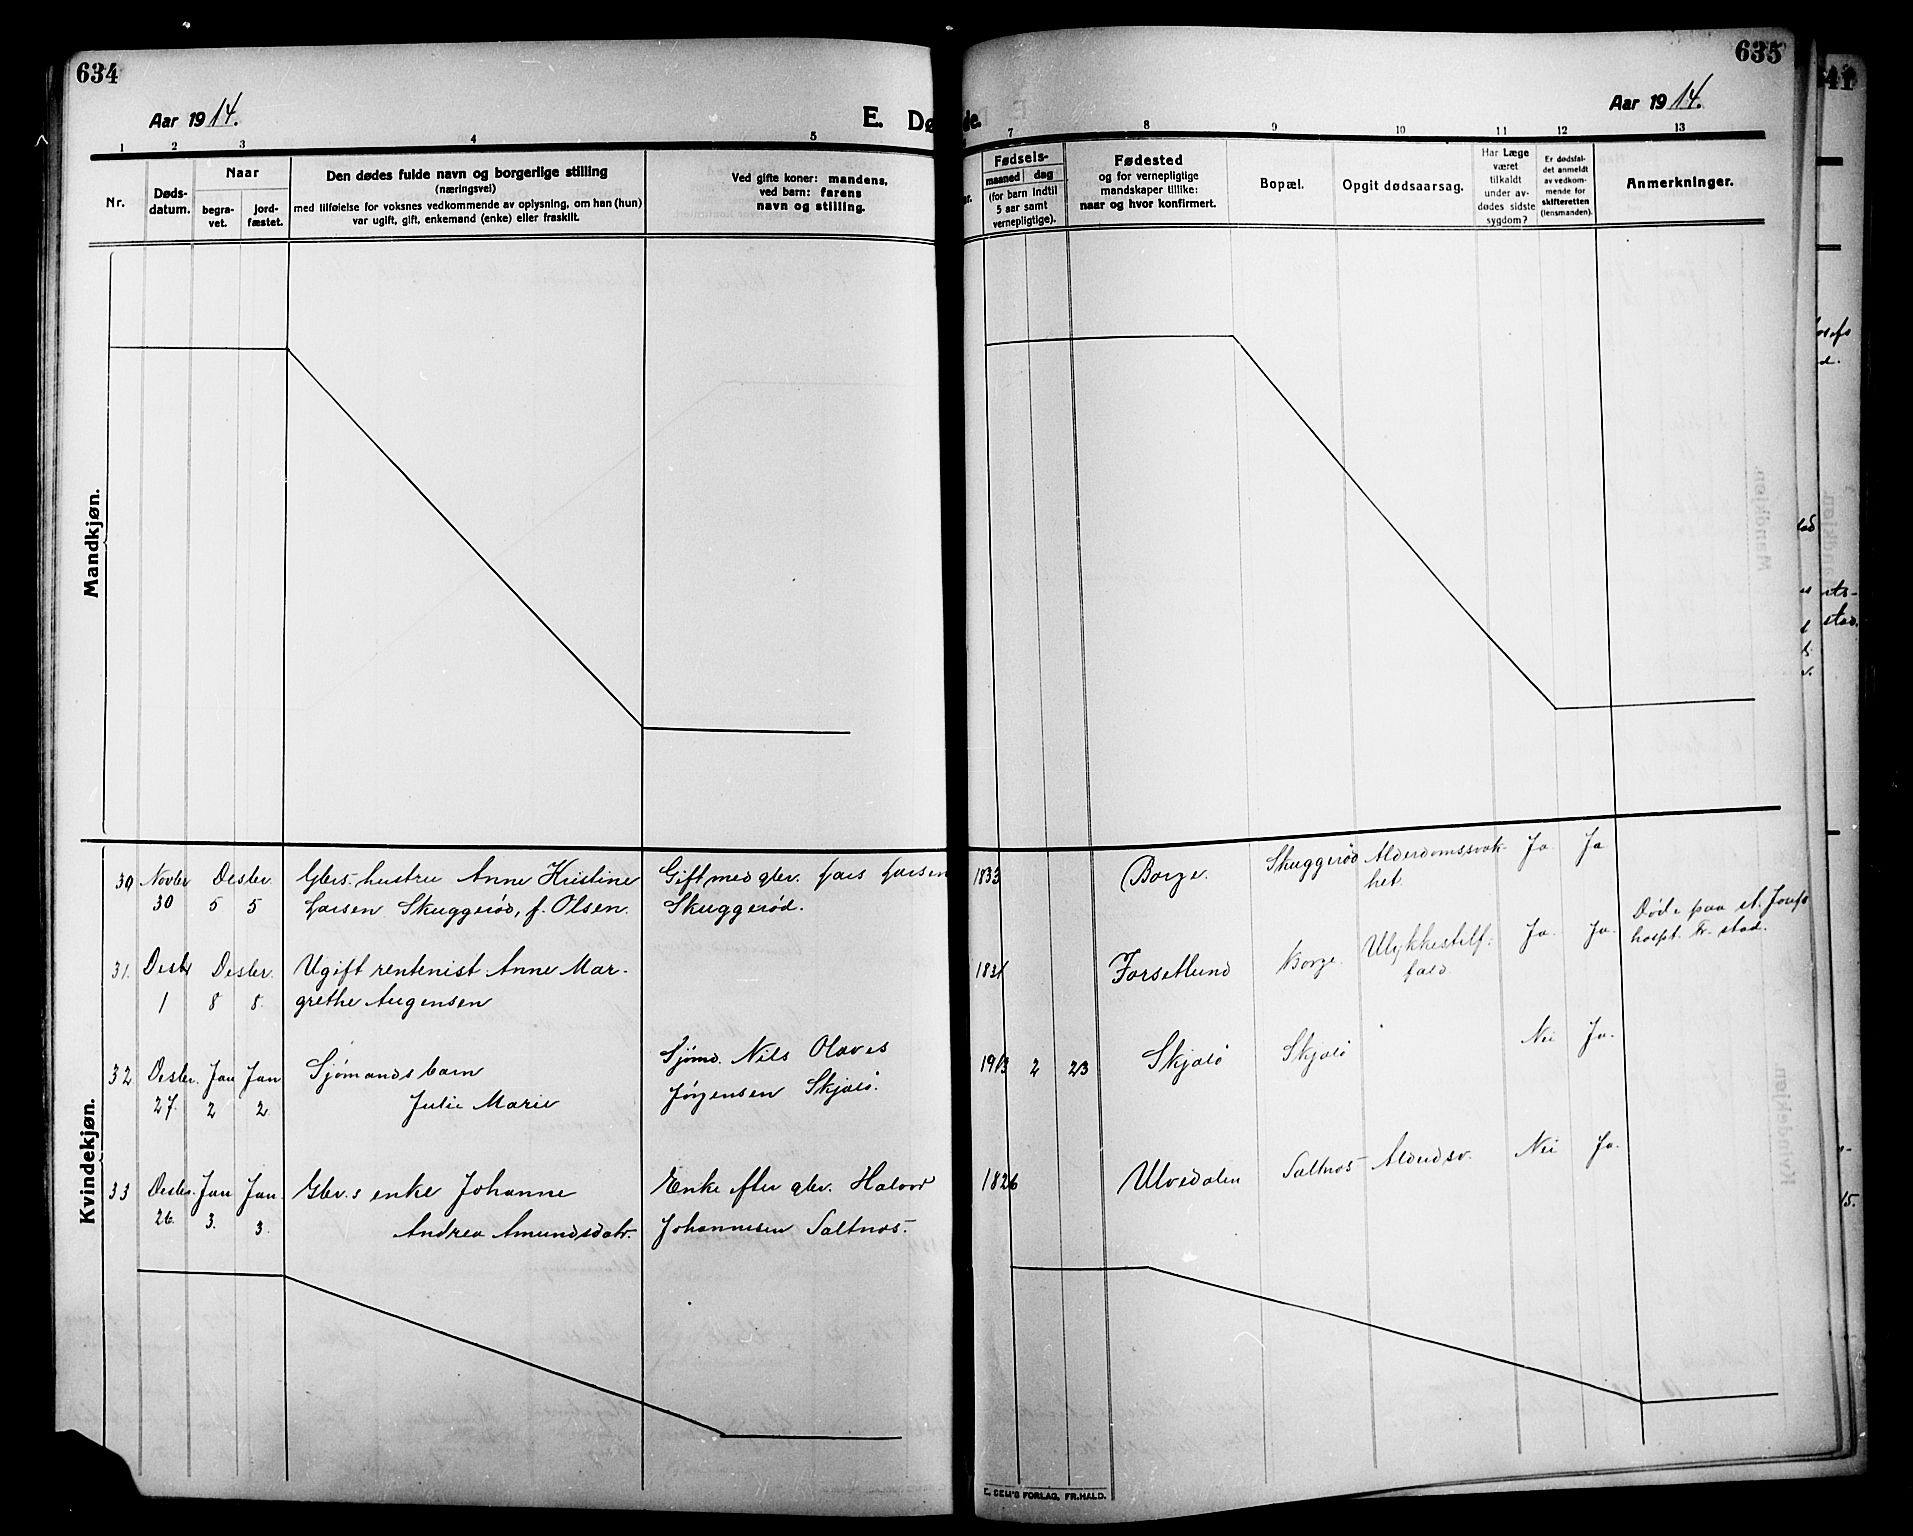 634
Aar 1914.
E. Dø
1 2 3 4 5
Nr.
Døds-
datum.
Naar
begra-
vet.
jord-
fæstet.
Den dødes fulde navn og borgerlige stilling
(næringsvei)
med tilføielse for voksnes vedkommende av oplysning, om han (hun)
var ugift, gift, enkemand (enke) eller fraskilt.
Ved gifte koner: mandens,
ved barn: farens
navn og stilling.
Mandkjøn.
Kvindekjøn.
30 Novbr Desbr. Gbrs. hustru Anne Kristine Gift med gbr. Lars Larsen
30 5 5 Larsen Skuggerød, f. Olsen. Skuggerød.
31. Desbr Desber. Ugift rentenist Anne Mar-
1 8 8. grethe Augensen
32 Desbr. Jan Jan Sjømands barn Sjømd. Nils Olaves
27. 2 2 Julie Marie Jørgensen Skjælø.
33 Desbr. Jan Jan. Gbr.s enke Johanne Enke efter gbr. Halvor
26. 3. 3. Andrea Amundsdatr. Johannesen Saltnes.
635
Aar 1914.
de.
7 8 9 10 11 12 13
ar.
Fødsels-
maaned dag
(for barn indtil
5 aar samt
vernepligtige).
Fødested
og for vernepligtige
mandskaper tillike:
naar og hvor konfirmert.
Bopæl.
Opgit dødsaarsag.
Har Læge
været
tilkaldt
under av-
dødes sidste
sygdom?
Er dødsfal-
det anmeldt
av vedkom-
mende for
skifteretten
(lensmanden).
Anmerkninger.
1833 Borge. Skuggerød Alderdomssvak- Ja Ja
het.
1831 Forsetlund Borge. Ulykkestilf: Ja. Ja. Døde paa st. Josefs
fald. hospt. Fr. stad.
1913 2 23 Skjælø Skjælø Nei Ja.
1826 Ulvedalen Saltnes Aldersdsv. Nei Ja.
E. SEM'S FORLAG, FR.HALD.
41